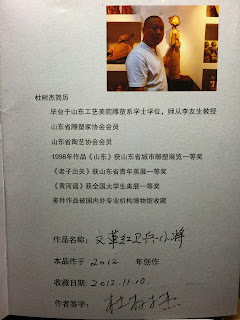 杜树杰简历
毕业于山东工艺美院雕塑系学士学位，师从李友生教授
山东省雕塑家协会会员
山东省陶艺协会会员
1998年作品《山东》获山东省城市雕塑展览一等奖
《老子出关》获山东省青年美展一等奖
《黄河谣》获全国大学生美展一等奖
多件作品破国内外专业机构博物馆收藏
作品名称：文革红卫兵小将
本品作于 2012 年创作
收藏日期：2012.11.10.
作者签字：杜树杰